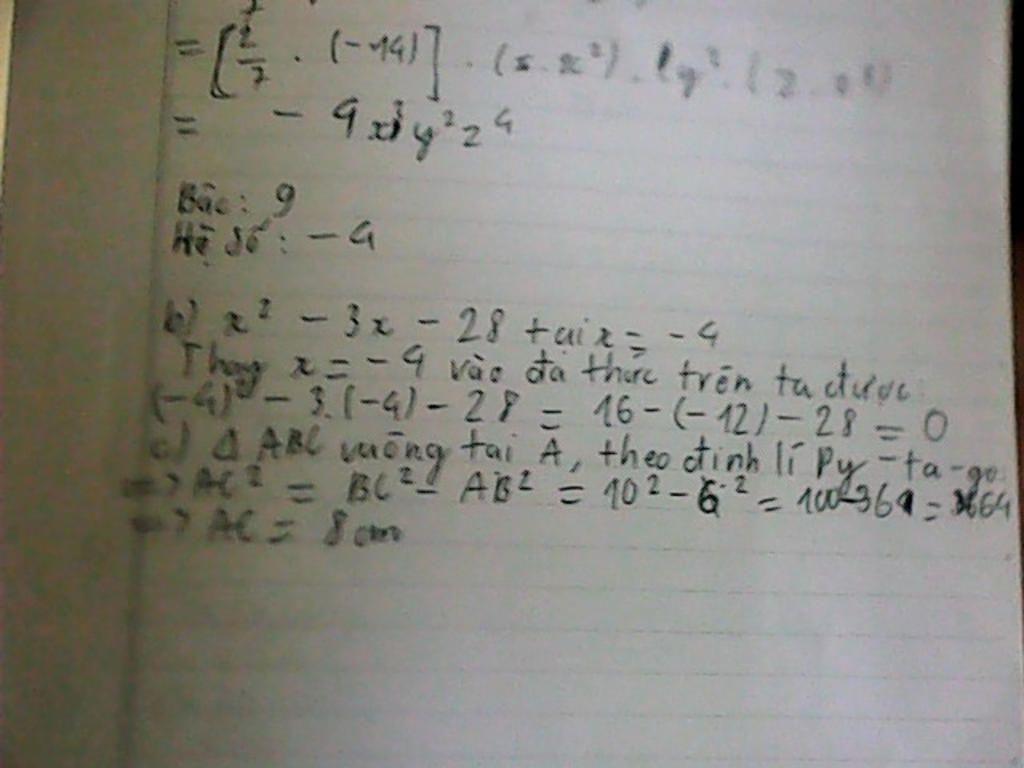 = [2/7 . (-14)] . (x.x²) . (y² . (z.
= - 4x³y²z⁴
Bậc: 9
Hệ số: -4
b) x² - 3x - 28 tại x = -4
Thay x = -4 vào đa thức trên ta được:
(-4)² - 3.(-4) - 28 = 16 - (-12) - 28 = 0
c) Δ ABC vuông tại A, theo định lí Py-ta-go:
=> AC² = BC² - AB² = 10² - 6² = 100-36 = 64
=> AC = 8 cm